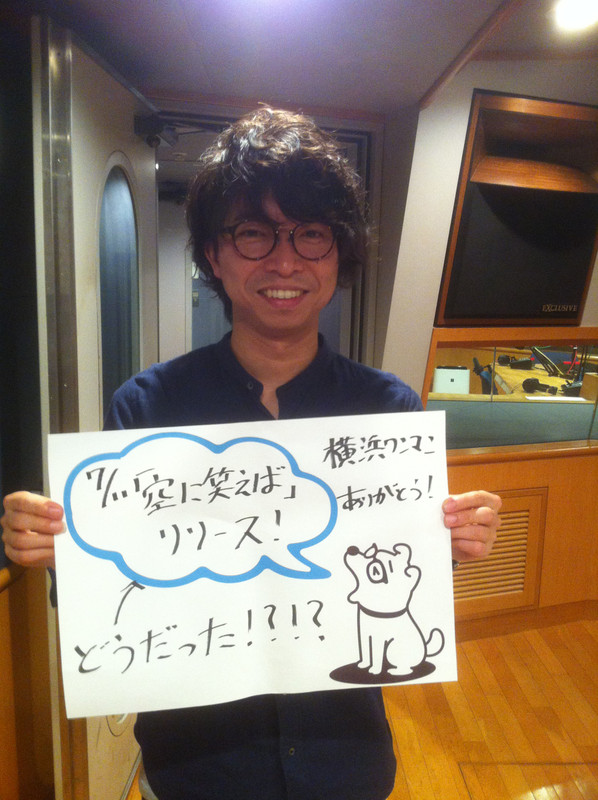 7/11「空に笑えば」
リリース!
横浜ワンマン
ありがとう!
どうだった!?!?
A
EXCLUSIVE